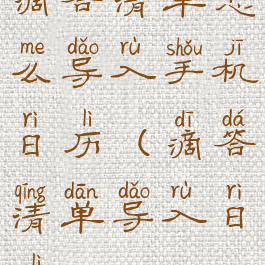 滴答清单怎
me dǎo rù shǒu jī
么导入手机
rì lì dī dá
日历(滴答
qīng dān dǎo rù rì
清单导入日
lì